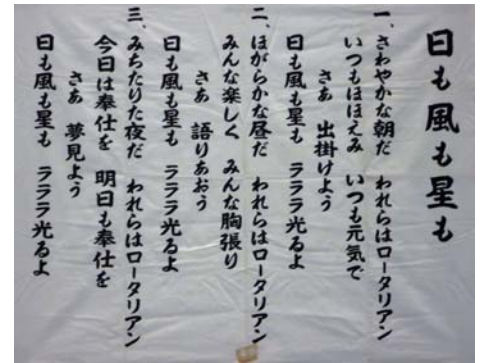 日も風も星も
一、さわやかな朝だ われらはロータリアン
いつもほほえみ いつも元気で
さあ 出掛けよう
日も風も星も ラララ光るよ
二、ほがらかな昼だ われらはロータリアン
みんな楽しく みんな胸張り
さあ 語りあおう
日も風も星も ラララ光るよ
三、みちたりた夜だ われらはロータリアン
今日は奉仕を 明日も奉仕を
さあ 夢見よう
日も風も星も ラララ光るよ